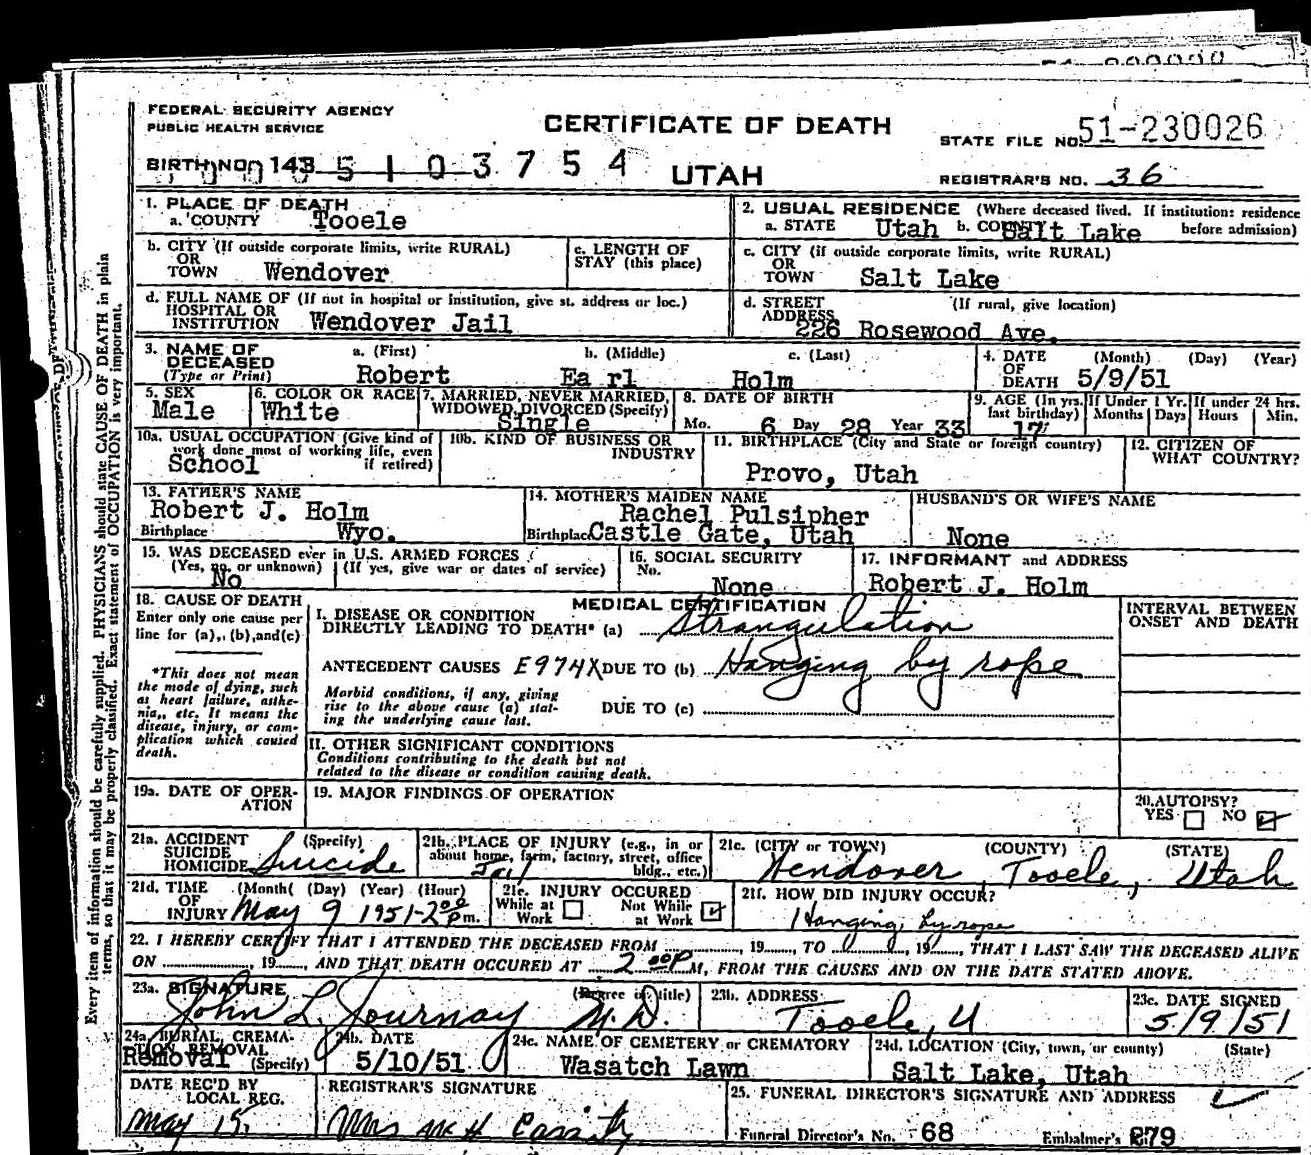 FEDERAL SECURITY AGENCY
PUBLIC HEALTH SERVICE
CERTIFICATE OF DEATH
STATE FILE NO. 51-230026
BIRTH NO. 143 5 1 0 3 7 5 4
UTAH
REGISTRAR'S NO. 36
1. PLACE OF DEATH
a. COUNTY Tooele
2. USUAL RESIDENCE (Where deceased lived. If institution: residence before admission)
a. STATE Utah b. COUNTY Salt Lake
b. CITY (If outside corporate limits, write RURAL)
OR
TOWN Wendover
c. LENGTH OF
STAY (this place)
c. CITY (if outside corporate limits, write RURAL)
OR
TOWN Salt Lake
d. FULL NAME OF (If not in hospital or institution, give st. address or loc.)
HOSPITAL OR
INSTITUTION Wendover Jail
d. STREET (If rural, give location)
ADDRESS
226 Rosewood Ave.
3. NAME OF
DECEASED
(Type or Print)
a. (First) b. (Middle) c. (Last)
Robert Earl Holm
4. DATE (Month) (Day) (Year)
OF
DEATH 5/9/51
5. SEX
Male
6. COLOR OR RACE
White
7. MARRIED, NEVER MARRIED,
WIDOWED, DIVORCED (Specify)
Single
8. DATE OF BIRTH
Mo. 6 Day 28 Year 33
9. AGE (In yrs. last birthday) 17
If Under 1 Yr. Months Days
If under 24 hrs. Hours Min.
10a. USUAL OCCUPATION (Give kind of
work done most of working life, even
if retired)
School
10b. KIND OF BUSINESS OR
INDUSTRY
11. BIRTHPLACE (City and State or foreign country)
Provo, Utah
12. CITIZEN OF
WHAT COUNTRY?
13. FATHER'S NAME
Robert J. Holm
Birthplace Wyo.
14. MOTHER'S MAIDEN NAME
Rachel Pulsipher
Birthplace Castle Gate, Utah
HUSBAND'S OR WIFE'S NAME
None
15. WAS DECEASED ever in U.S. ARMED FORCES
(Yes, no, or unknown) (If yes, give war or dates of service)
No
16. SOCIAL SECURITY
No.
None
17. INFORMANT and ADDRESS
Robert J. Holm
18. CAUSE OF DEATH
Enter only one cause per
line for (a),, (b),and(c)
*This does not mean
the mode of dying, such
as heart failure, asthe-
nia,, etc. It means the
disease, injury, or com-
plication which caused
death.
MEDICAL CERTIFICATION
I. DISEASE OR CONDITION
DIRECTLY LEADING TO DEATH* (a) Strangulation
ANTECEDENT CAUSES E974X DUE TO (b) Hanging by rope
Morbid conditions, if any, giving
rise to the above cause (a) stat-
ing the underlying cause last.
DUE TO (c)
INTERVAL BETWEEN
ONSET AND DEATH
II. OTHER SIGNIFICANT CONDITIONS
Conditions contributing to the death but not
related to the disease or condition causing death.
19a. DATE OF OPER-
ATION
19. MAJOR FINDINGS OF OPERATION
20. AUTOPSY?
YES NO
21a. ACCIDENT (Specify)
SUICIDE
HOMICIDE Suicide
21b. PLACE OF INJURY (e.g., in or
about home, farm, factory, street, office
bldg., etc.)
Jail
21c. (CITY or TOWN) (COUNTY) (STATE)
Wendover, Tooele, Utah
21d. TIME (Month( (Day) (Year) (Hour)
OF
INJURY May 9 1951-2:00 pm.
21e. INJURY OCCURED
While at Work Not While at Work
21f. HOW DID INJURY OCCUR?
Hanging by rope
22. I HEREBY CERTIFY THAT I ATTENDED THE DECEASED FROM , 19 , TO , 19 , THAT I LAST SAW THE DECEASED ALIVE
ON 19 , AND THAT DEATH OCCURED AT 2:00 P M, FROM THE CAUSES AND ON THE DATE STATED ABOVE.
23a. SIGNATURE (Degree or title)
John L. Gournay M.D.
23b. ADDRESS
Tooele, U
23c. DATE SIGNED
5/9/51
24a BURIAL, CREMA-
TION REMOVAL
Removal (Specify)
24b. DATE
5/10/51
24c. NAME OF CEMETERY or CREMATORY
Wasatch Lawn
24d. LOCATION (City, town, or county) (State)
Salt Lake, Utah
DATE REC'D BY
LOCAL REG.
May 15
REGISTRAR'S SIGNATURE
Mrs Cassity
25. FUNERAL DIRECTOR'S SIGNATURE AND ADDRESS
Funeral Director's No. 68 Embalmer's 279
Every item of information should be carefully supplied. PHYSICIANS should state CAUSE OF DEATH in plain
terms, so that it may be properly classified. Exact statement of OCCUPATION is very important.